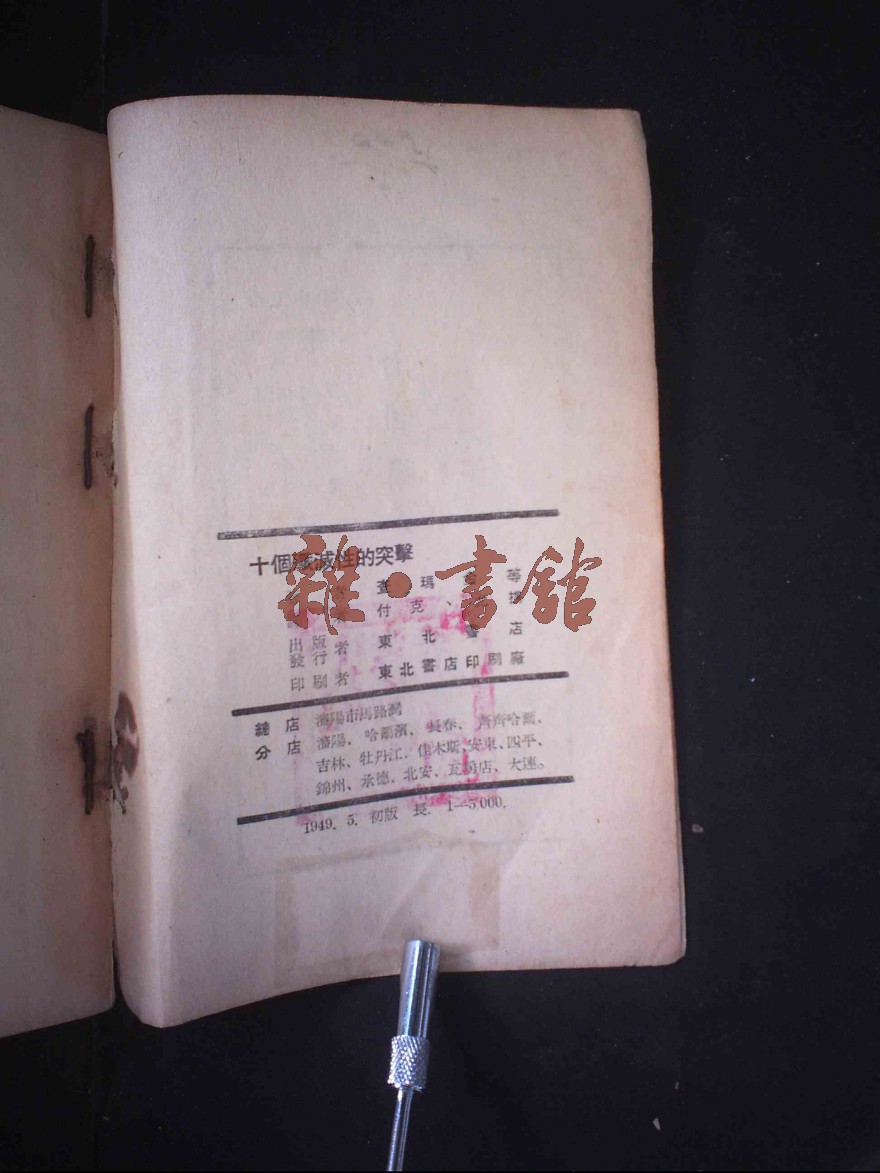 十個殲滅性的突擊
雜·書館
查瑪金等
付克、
出版者
發行者
東北書店
印刷者 東北書店印刷廠
總店 瀋陽市馬路灣
分店 瀋陽、哈爾濱、長春、齊齊哈爾、
吉林、牡丹江、佳木斯、安東、四平、
錦州、承德、北安、瓦房店、大連。
1949. 5. 初版 長. 1—5,000.